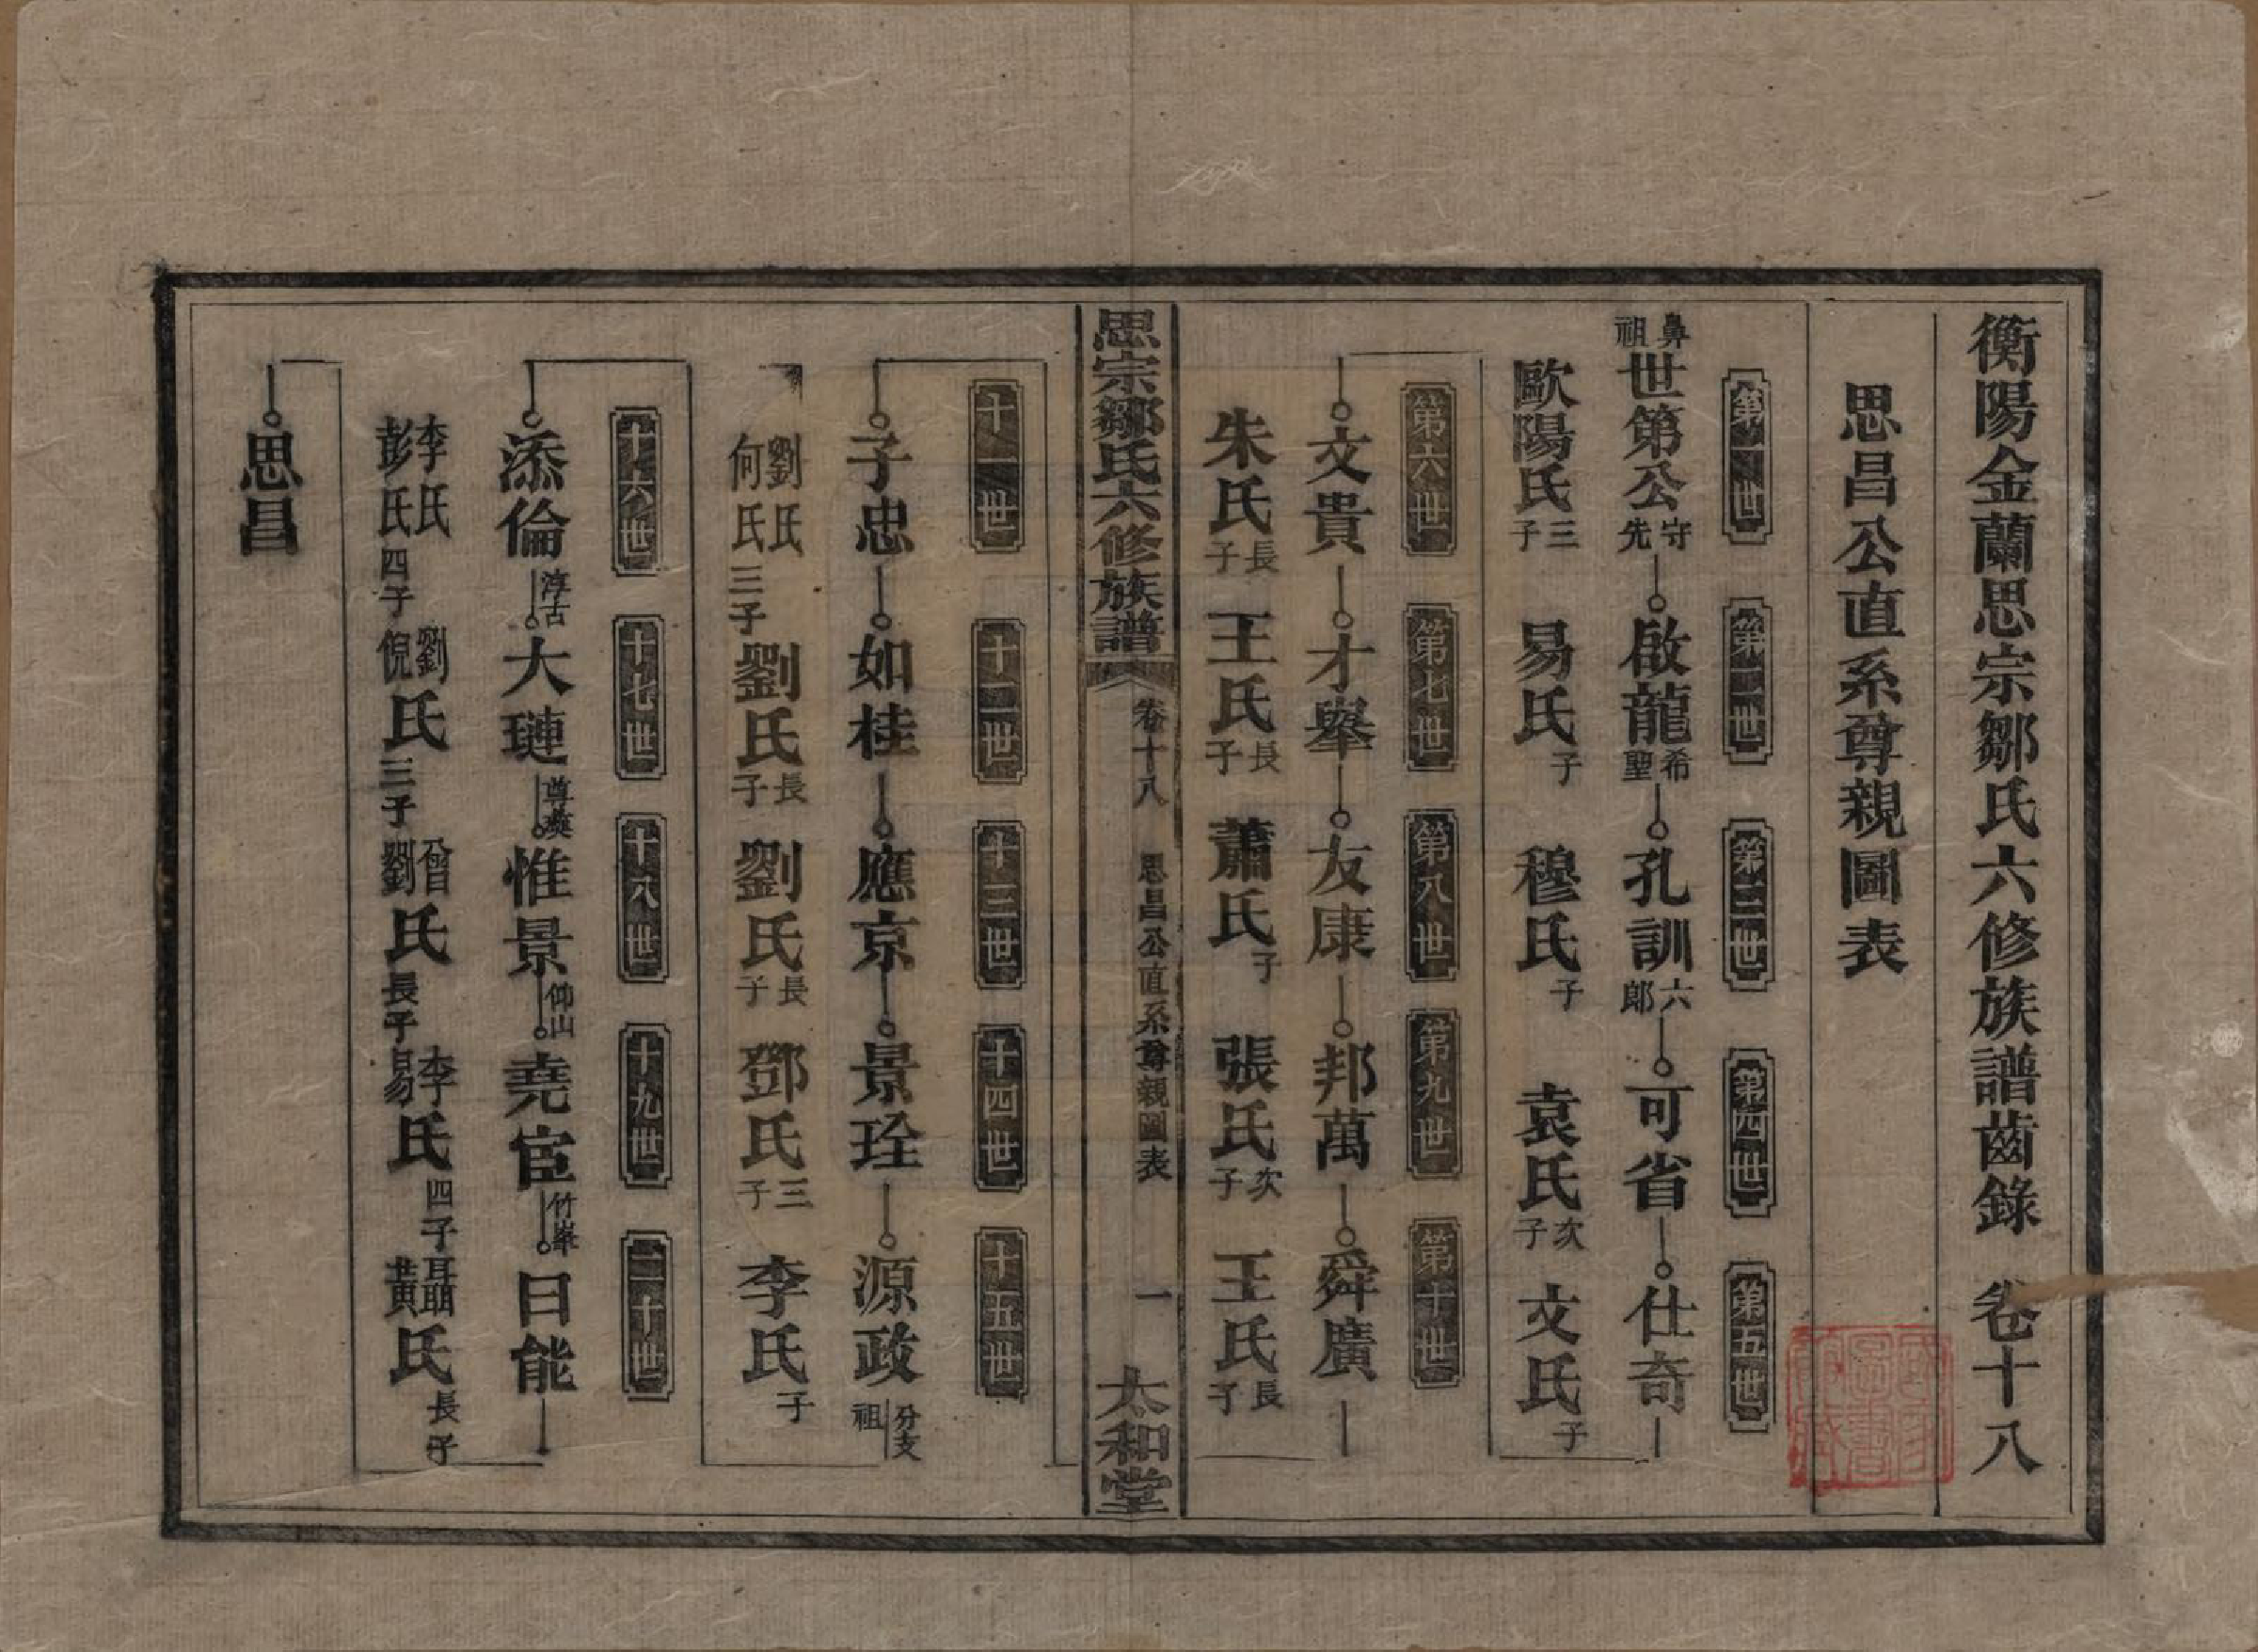 衡陽金蘭思宗鄒氏六修族譜齒錄 卷十八
思昌公直系尊親圖表
第一世 第二世 第三世 第四世 第五世
鼻祖世第公守先 啟龍希聖 孔訓六郎 可省 仕奇
歐陽氏三子 易氏子 穆氏子 袁氏次子 文氏子
第六世 第七世 第八世 第九世 第十世
文貴 才舉 友康 邦萬 舜廣
朱氏長子 王氏長子 蕭氏子 張氏次子 王氏長子
思宗鄒氏六修族譜 卷十八 思昌公直系尊親圖表 一 太和堂
十一世 十二世 十三世 十四世 十五世
子忠 如桂 應京 景琀 源政分支祖
劉氏何氏三子 劉氏長子 劉氏長子 鄧氏三子 李氏子
十六世 十七世 十八世 十九世 二十世
添倫淳古 大璉尊 惟景仰山 堯宦竹峯 日能
李氏彭氏四子 劉倪氏三子 曾劉氏長子 李易氏四子 聶黃氏長子
思昌
國家圖書館藏